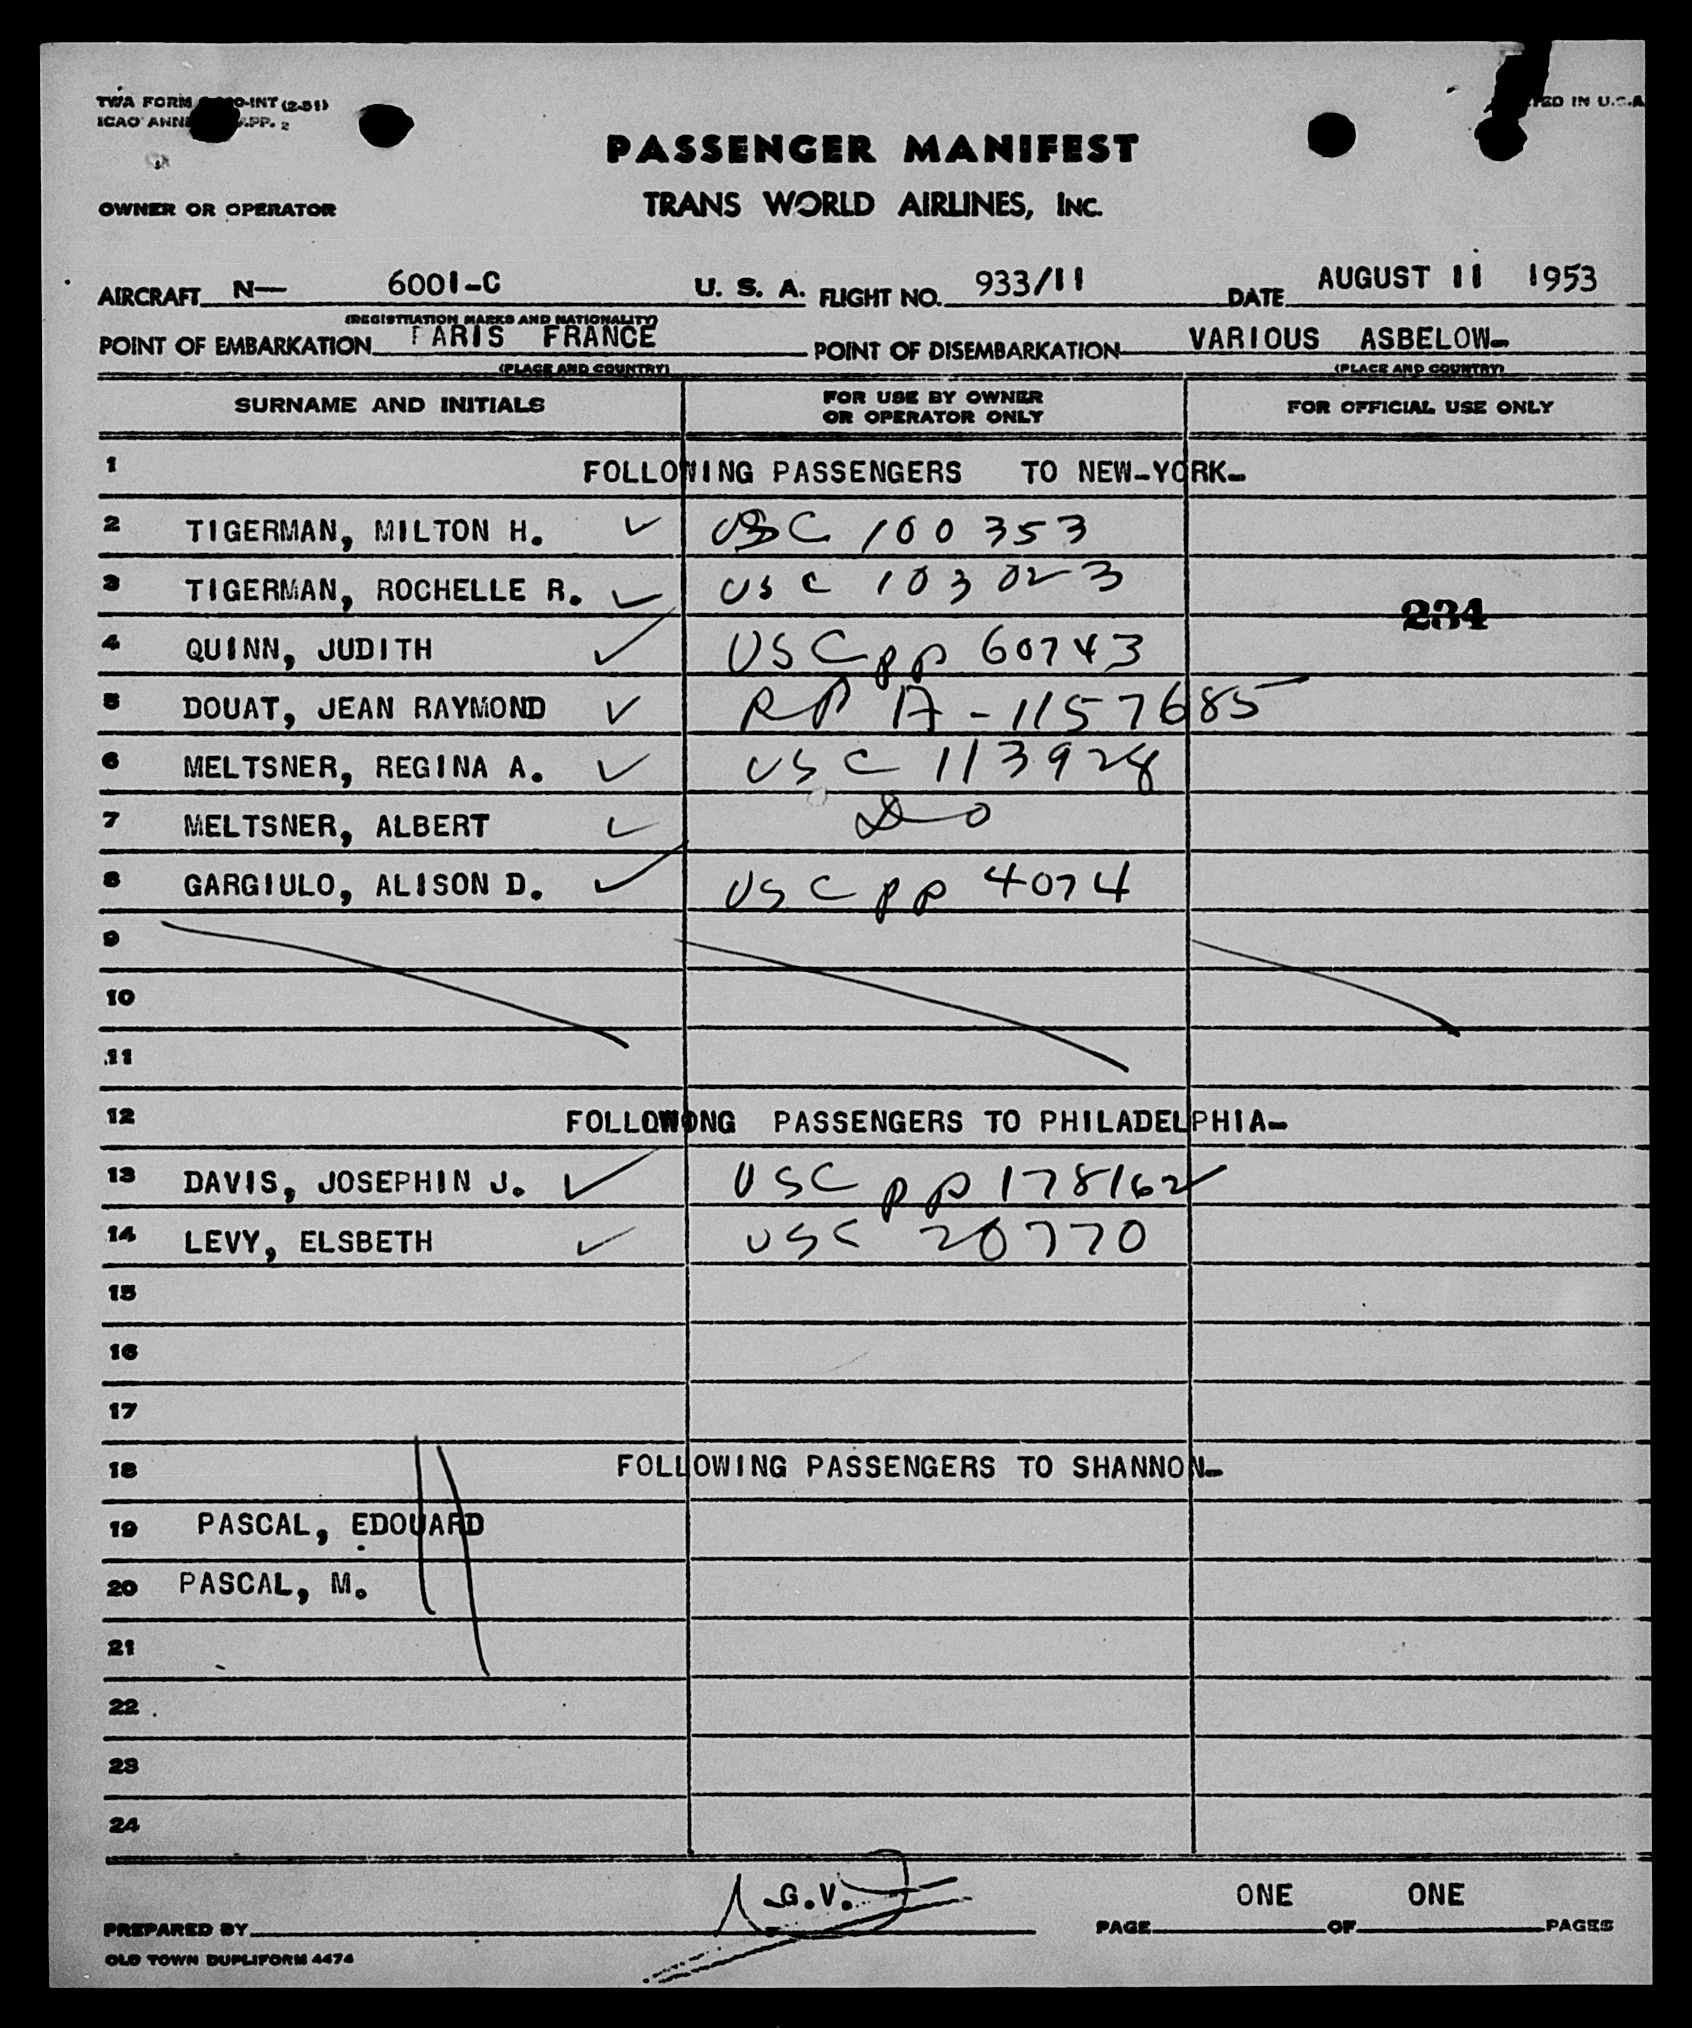 TWA FORM 0-INT (2-51)
ICAO ANNE APP. 2
TED IN U.S.A
PASSENGER MANIFEST
TRANS WORLD AIRLINES, INC.
OWNER OR OPERATOR
AIRCRAFT N— 6001-C U. S. A. FLIGHT NO. 933/11 DATE AUGUST 11 1953
(REGISTRATION MARKS AND NATIONALITY)
POINT OF EMBARKATION PARIS FRANCE POINT OF DISEMBARKATION VARIOUS ASBELOW-
(PLACE AND COUNTRY) (PLACE AND COUNTRY)
SURNAME AND INITIALS FOR USE BY OWNER OR OPERATOR ONLY FOR OFFICIAL USE ONLY
1 FOLLOWING PASSENGERS TO NEW-YORK-
2 TIGERMAN, MILTON H. ✓ USC 100353
3 TIGERMAN, ROCHELLE R. ✓ USC 103023
234
4 QUINN, JUDITH ✓ USC pp 60743
5 DOUAT, JEAN RAYMOND ✓ RP A-1157685
6 MELTSNER, REGINA A. ✓ USC 113928
7 MELTSNER, ALBERT ✓ Do
8 GARGIULO, ALISON D. ✓ USC pp 4074
9
10
11
12 FOLLOWONG PASSENGERS TO PHILADELPHIA-
13 DAVIS, JOSEPHIN J. ✓ USC pp 178162
14 LEVY, ELSBETH ✓ USC 20770
15
16
17
18 FOLLOWING PASSENGERS TO SHANNON-
19 PASCAL, EDOUARD
20 PASCAL, M.
21
22
23
24
PREPARED BY G.V. PAGE ONE OF ONE PAGES
OLD TOWN DUPLIFORM 4474